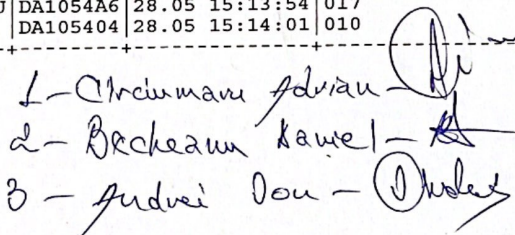 DA1054A6|28.05 15:13:54|017
|DA105404|28.05 15:14:01|010
1 - Circiumaru Adrian -
2 - Bacheanu Daniel -
3 - Andrei Don -